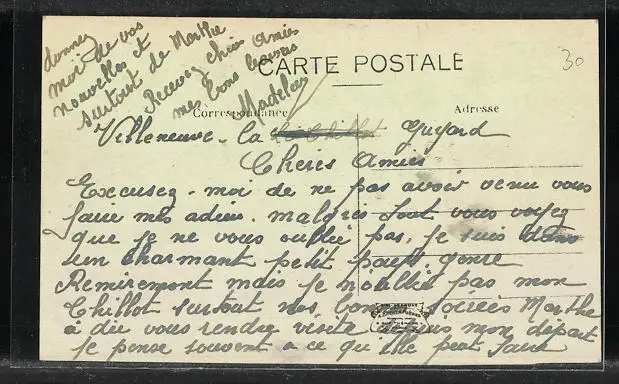 donnez
moi de vos
nouvelles et
surtout de Marthe
Recevez chères Amies
mes bons baisers
30
CARTE POSTALE
Correspondance
Adresse
Villeneuve-la Guyard
Cheres Amies
Excusez-moi de ne pas avoir venu vous
faire mes adieu. malgrès tout vous voyez
que je ne vous oublie pas, je suis dans
un charmant petit pays genre
Remiremont mais je n'oublie pas mon
Thillot surtout nos bonnes soirées Marthe
à du vous rendre visite depuis mon départ
je pense souvent a ce qu'elle peut faire